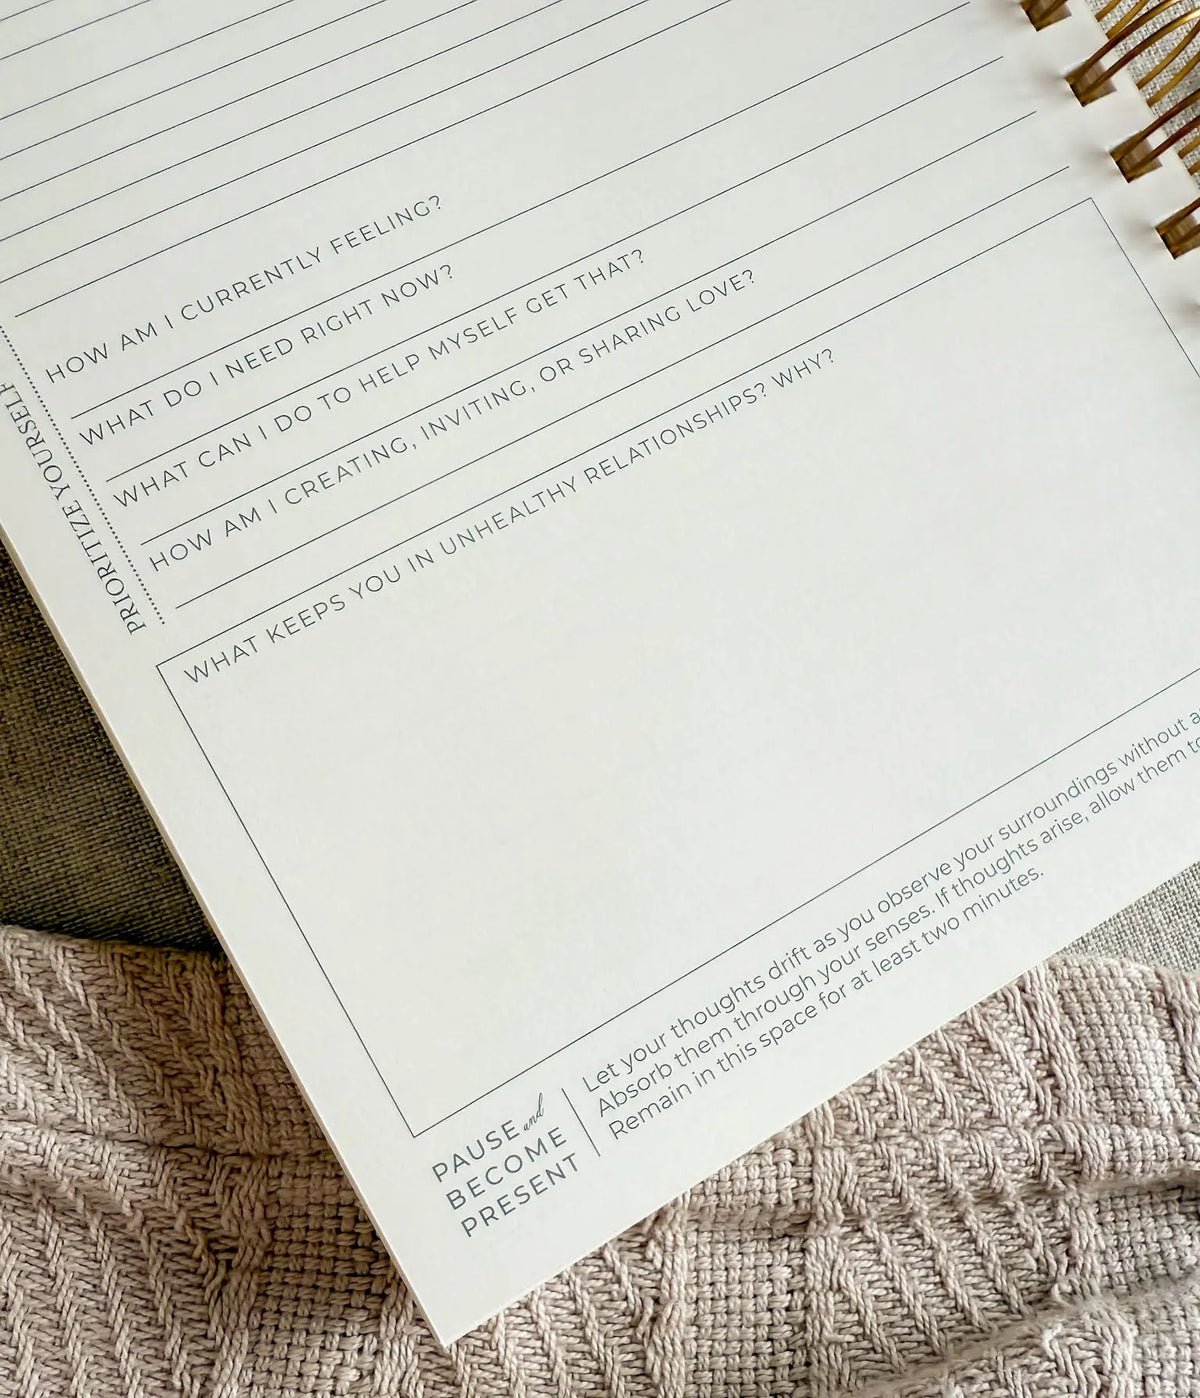 PRIORITIZE YOURSELF
HOW AM I CURRENTLY FEELING?
WHAT DO I NEED RIGHT NOW?
WHAT CAN I DO TO HELP MYSELF GET THAT?
HOW AM I CREATING, INVITING, OR SHARING LOVE?
WHAT KEEPS YOU IN UNHEALTHY RELATIONSHIPS? WHY?
PAUSE and
BECOME
PRESENT
Let your thoughts drift as you observe your surroundings without
Absorb them through your senses. If thoughts arise, allow them
Remain in this space for at least two minutes.